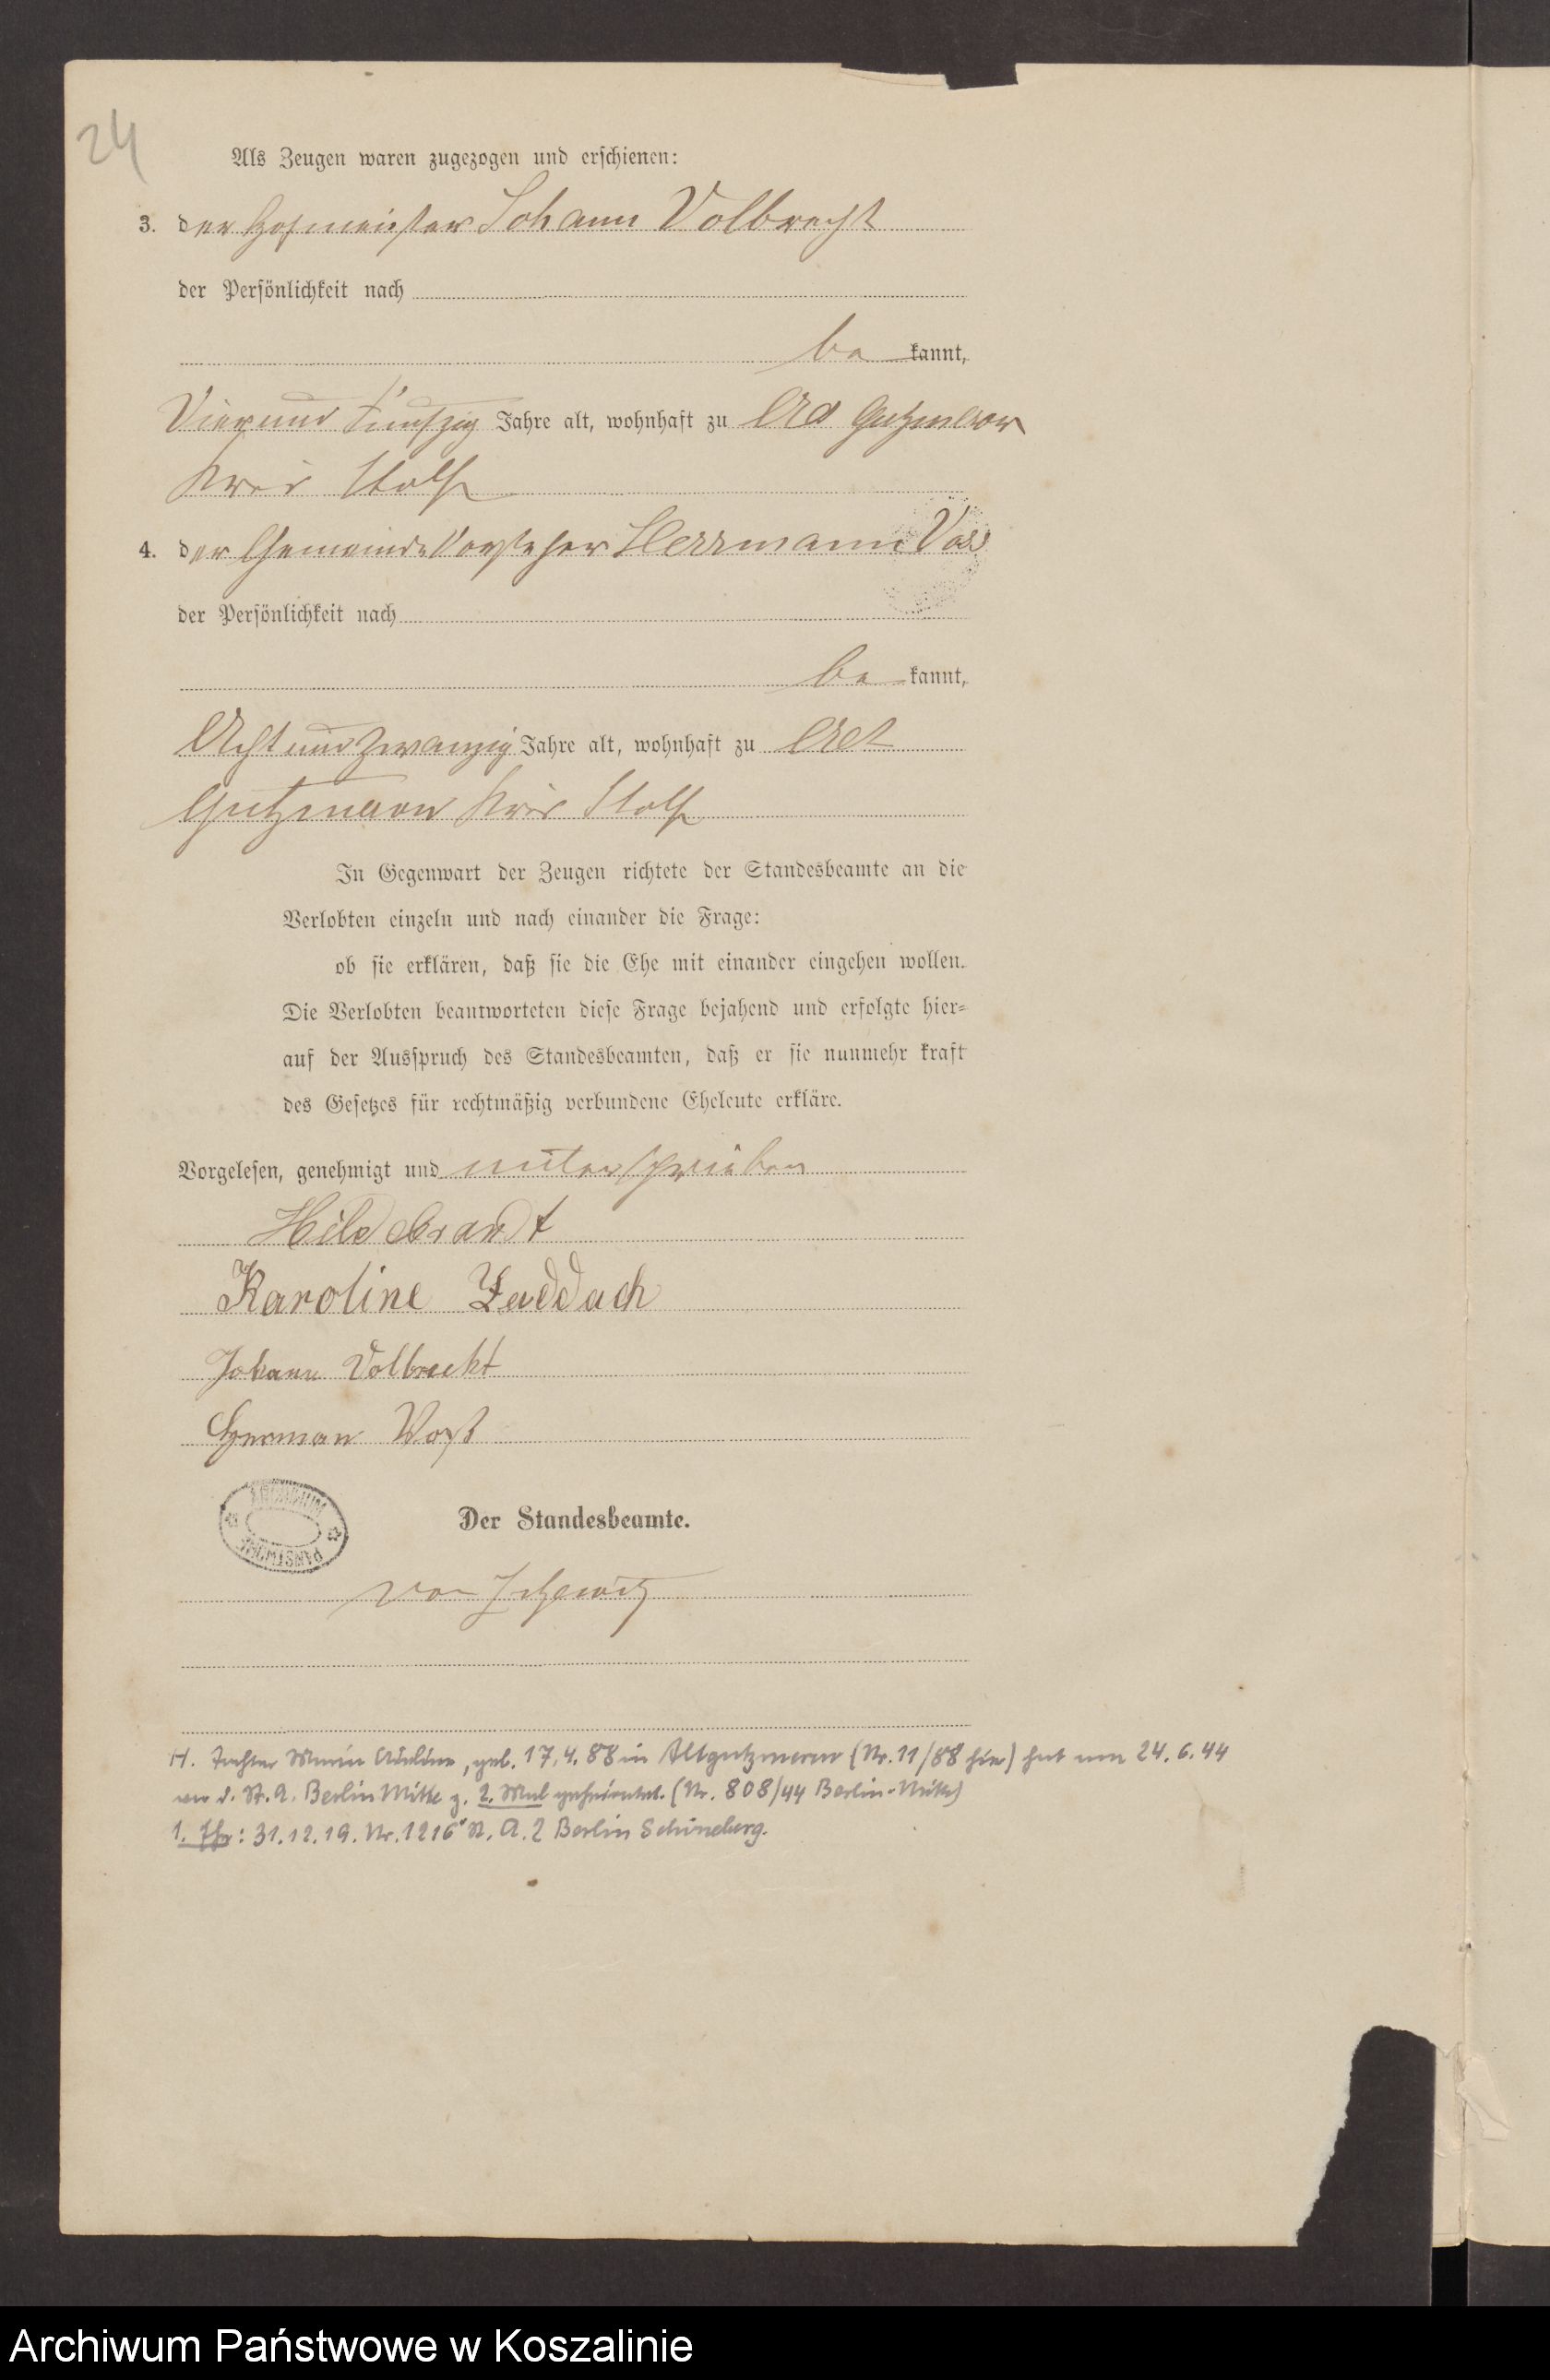 24
Als Zeugen waren zugezogen und erschienen:
3. der Hofmeister Johann Volbrecht
der Persönlichkeit nach
be kannt,
Vier und Funfzig Jahre alt, wohnhaft zu Alt Gutzmerow
Kreis Stolp
4. der Gemeinde Vorsteher Herrmann Voss
der Persönlichkeit nach
be kannt,
Acht und Zwanzig Jahre alt, wohnhaft zu Alt
Gutzmerow Kreis Stolp
In Gegenwart der Zeugen richtete der Standesbeamte an die
Verlobten einzeln und nach einander die Frage:
ob sie erklären, daß sie die Ehe mit einander eingehen wollen.
Die Verlobten beantworteten diese Frage bejahend und erfolgte hier=
auf der Ausspruch des Standesbeamten, daß er sie nunmehr kraft
des Gesetzes für rechtmäßig verbundene Eheleute erkläre.
Vorgelesen, genehmigt und unterschrieben
Hildebrandt
Karoline Zaddach
Johann Volbrecht
Herman Voß
ARCHIWUM PAŃSTWOWE
Der Standesbeamte.
von Zitzewitz
H. Tochter Marie Auline, geb. 17.4.88 in Altgutzmerow (Nr. 11/88 hier) hat am 24.6.44
vor d. St. A. Berlin Mitte z. 2. Mal geheiratet. (Nr. 808/44 Berlin-Mitte)
1. Ehe: 31.12.19. Nr. 1216 St. A. 2 Berlin Schöneberg.
Archiwum Państwowe w Koszalinie